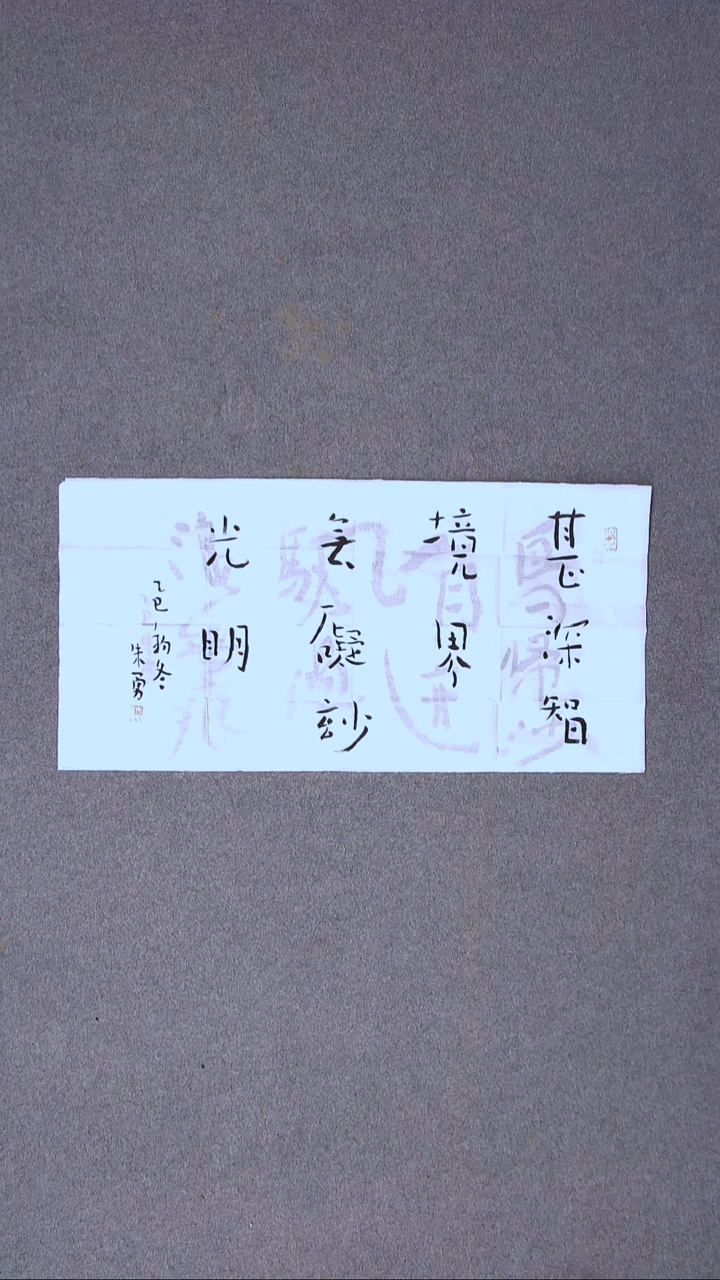 甚深智
境界
無礙玅
光明
乙巳初冬
朱勇